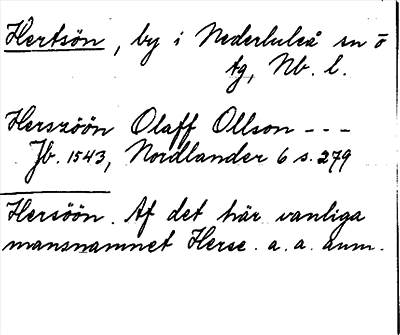 Hertsön, by i Nederluleå sn ö
tg, Nb. l.
Herszöön Olaff Ollson - - -
Jb. 1543, Nordlander 6 s. 279
Hersöön. Af det här vanliga
mansnamnet Herse. a. a. anm.